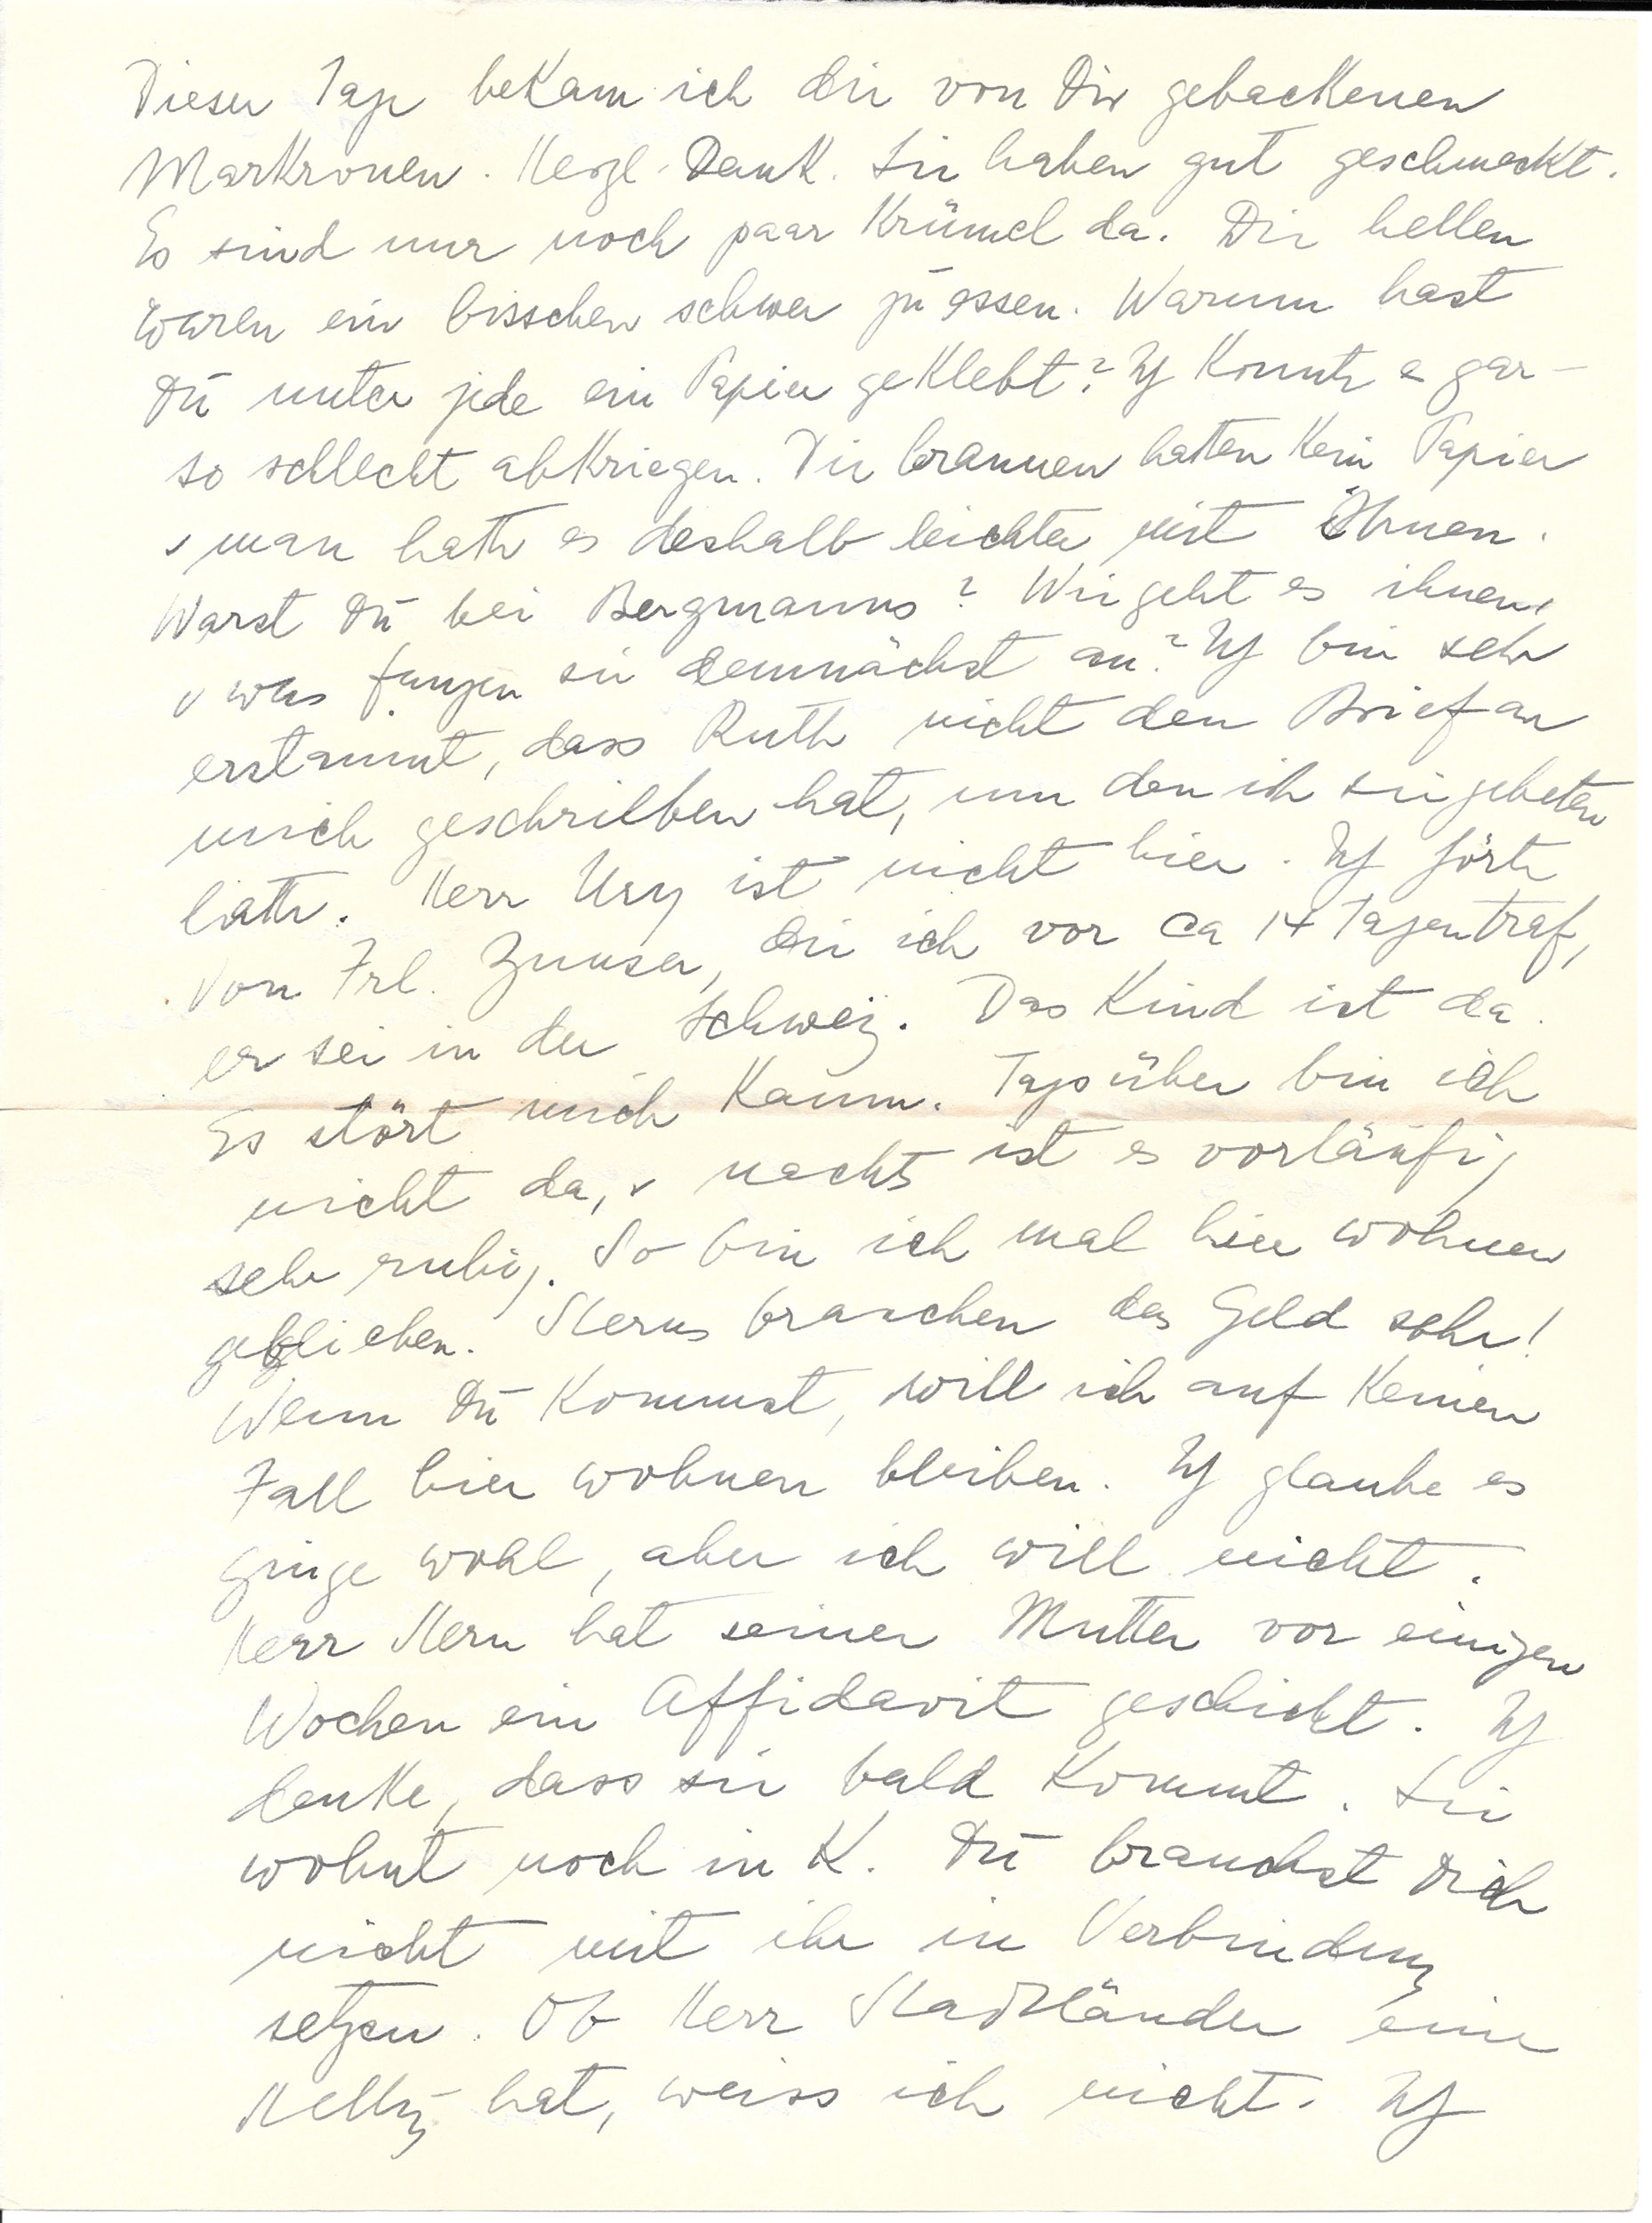 Dieser Tage bekam ich die von Dir gebackenen
Markronen. Herzl. Dank. Sie haben gut geschmeckt.
Es sind nur noch paar Krümel da. Die hellen
waren ein bisschen schwer zu essen. Warum hast
Du unter jede ein Papier geklebt? Ich konnte es gar-
so schlecht abkriegen. Die braunen hatten kein Papier
u man hatte es deshalb leichter mit Ihnen.
Warst Du bei Bergmanns? Wie geht es ihnen,
u was fangen sie demnächst an? Ich bin sehr
erstaunt, dass Ruth nicht den Brief an
mich geschrieben hat, um den ich sie gebeten
hatte. Herr Ury ist nicht hier. Ich hörte
von Frl. Zunser, die ich vor ca 14 Tagen traf,
er sei in der Schweiz. Das Kind ist da.
Es stört mich kaum. Tagsüber bin ich
nicht da, u nachts ist es vorläufig
sehr ruhig. So bin ich mal hier wohnen
geblieben. Sterns brauchen das Geld sehr!
Wenn Du kommst, will ich auf keinen
Fall hier wohnen bleiben. Ich glaube es
ginge wohl, aber ich will nicht.
Herr Stern hat seiner Mutter vor einigen
Wochen ein Affidavit geschickt. Ich
denke, dass sie bald kommt. Sie
wohnt noch in K. Du brauchst Dich
nicht mit ihr in Verbindung
setzen. Ob Herr Stadtländer eine
Stellung hat, weiss ich nicht. Ich